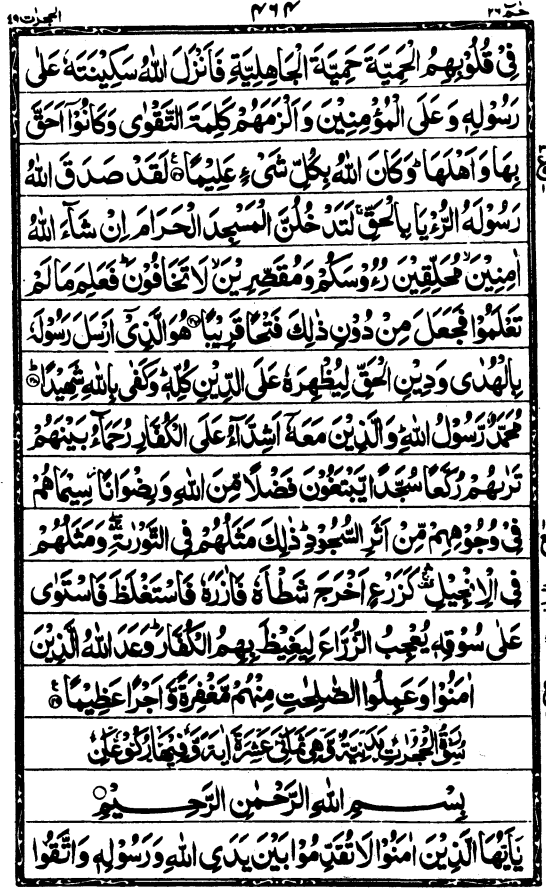 الحجرت ٤٩ ٤٦٤ حٰمٓ ٢٦
فِیْ قُلُوْبِهِمُ الْحَمِیَّةَ حَمِیَّةَ الْجَاهِلِیَّةِ فَاَنْزَلَ اللّٰهُ سَكِیْنَتَهٗ عَلٰی
رَسُوْلِهٖ وَعَلَی الْمُؤْمِنِیْنَ وَاَلْزَمَهُمْ كَلِمَةَ التَّقْوٰی وَكَانُوْۤا اَحَقَّ
بِهَا وَاَهْلَهَا ؕ وَكَانَ اللّٰهُ بِكُلِّ شَیْءٍ عَلِیْمًا ۟ لَقَدْ صَدَقَ اللّٰهُ
رَسُوْلَهُ الرُّءْیَا بِالْحَقِّ ۚ لَتَدْخُلُنَّ الْمَسْجِدَ الْحَرَامَ اِنْ شَآءَ اللّٰهُ
اٰمِنِیْنَ ۙ مُحَلِّقِیْنَ رُءُوْسَكُمْ وَمُقَصِّرِیْنَ ۙ لَا تَخَافُوْنَ ؕ فَعَلِمَ مَا لَمْ
تَعْلَمُوْا فَجَعَلَ مِنْ دُوْنِ ذٰلِكَ فَتْحًا قَرِیْبًا ۟ هُوَ الَّذِیْۤ اَرْسَلَ رَسُوْلَهٗ
بِالْهُدٰی وَدِیْنِ الْحَقِّ لِیُظْهِرَهٗ عَلَی الدِّیْنِ كُلِّهٖ ؕ وَكَفٰی بِاللّٰهِ شَهِیْدًا ۟ؕ
مُحَمَّدٌ رَّسُوْلُ اللّٰهِ ؕ وَالَّذِیْنَ مَعَهٗۤ اَشِدَّآءُ عَلَی الْكُفَّارِ رُحَمَآءُ بَیْنَهُمْ
تَرٰىهُمْ رُكَّعًا سُجَّدًا یَّبْتَغُوْنَ فَضْلًا مِّنَ اللّٰهِ وَرِضْوَانًا ؗ سِیْمَاهُمْ
فِیْ وُجُوْهِهِمْ مِّنْ اَثَرِ السُّجُوْدِ ؕ ذٰلِكَ مَثَلُهُمْ فِی التَّوْرٰىةِ ۛۖۚ وَمَثَلُهُمْ
فِی الْاِنْجِیْلِ ۛ۫ۚ كَزَرْعٍ اَخْرَجَ شَطْاَهٗ فَاٰزَرَهٗ فَاسْتَغْلَظَ فَاسْتَوٰی
عَلٰی سُوْقِهٖ یُعْجِبُ الزُّرَّاعَ لِیَغِیْظَ بِهِمُ الْكُفَّارَ ؕ وَعَدَ اللّٰهُ الَّذِیْنَ
اٰمَنُوْا وَعَمِلُوا الصّٰلِحٰتِ مِنْهُمْ مَّغْفِرَةً وَّاَجْرًا عَظِیْمًا ۟۠
سُوْرَةُ الْحُجُرٰتِ مَدَنِیَّةٌ وَّهِیَ ثَمَانِیَ عَشْرَةَ اٰیَةً وَّفِیْهَا رُكُوْعَانِ
بِسْمِ اللّٰهِ الرَّحْمٰنِ الرَّحِیْمِ
یٰۤاَیُّهَا الَّذِیْنَ اٰمَنُوْا لَا تُقَدِّمُوْا بَیْنَ یَدَیِ اللّٰهِ وَرَسُوْلِهٖ وَاتَّقُوا